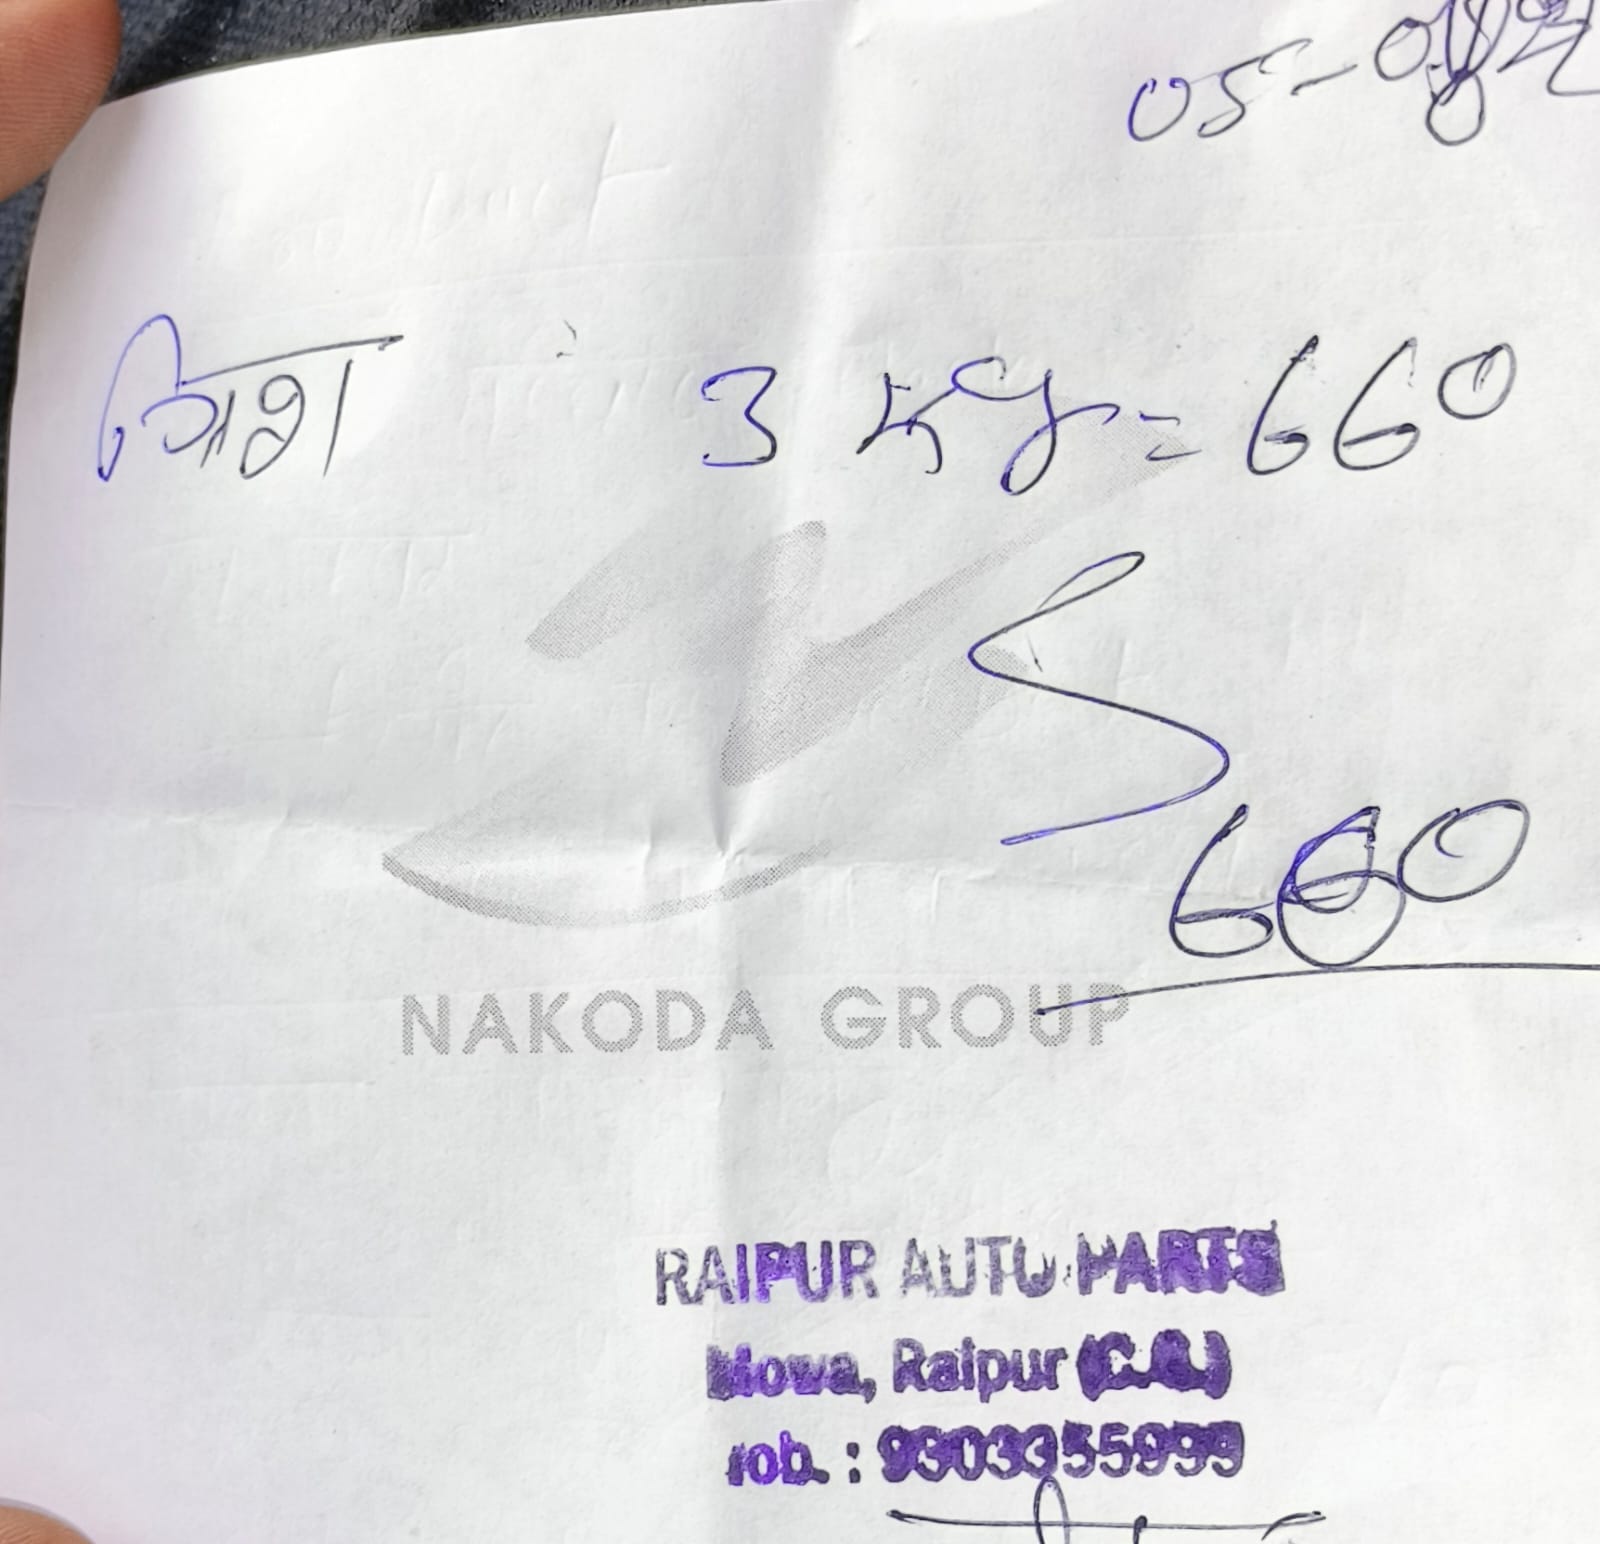 05-
3 = 660
660
NAKODA GROUP
RAIPUR AUTO PARTS
Mowa, Raipur (C.G.)
Mob. : 9303355999